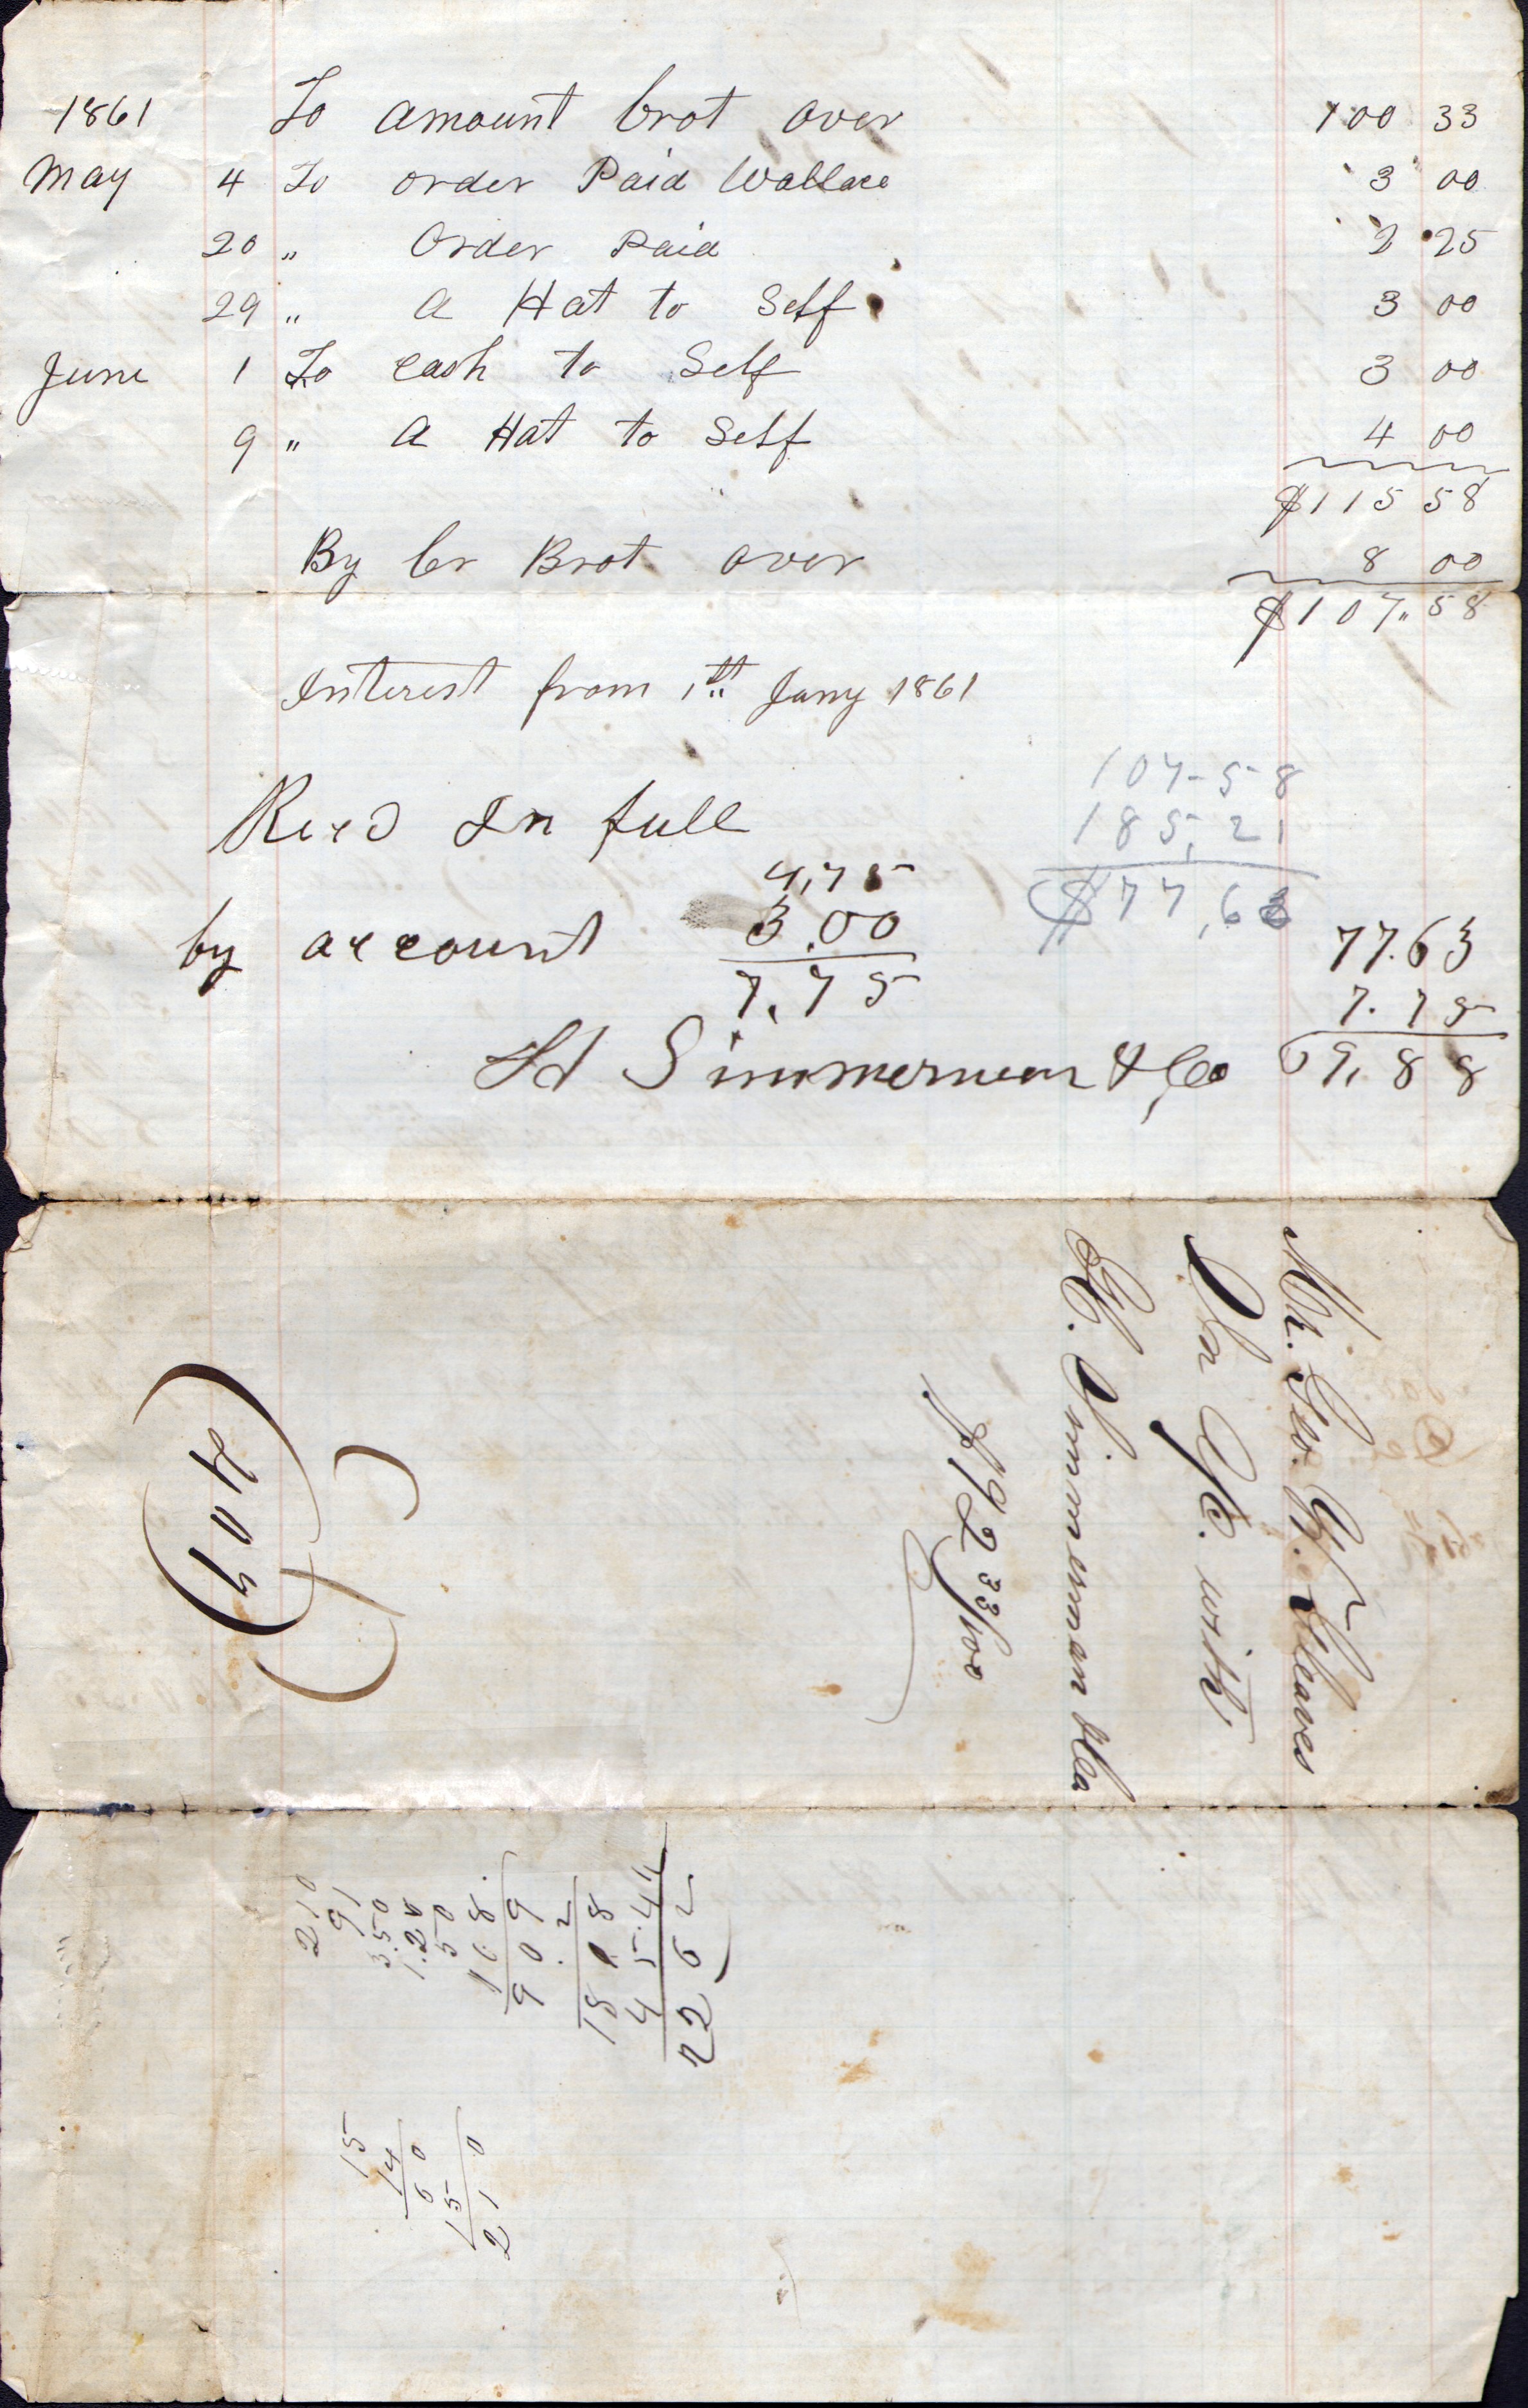 1861 To amount brot over 100 33
May 4 To order Paid Wallace 3 00
20 " Order Paid 2 25
29 " a Hat to Self 3 00
June 1 To cash to Self 3 00
9 " a Hat to Self 4 00
$115 58
By Cr Brot over 8 00
$107.58
Interest from 1st Jany 1861
107-58
185,21
$77,63
Recd In full
4,75
by account 3.00
7.75
77.63
7.75
69,88
H Simmerman & Co
Mr. Geo. W. Cleaves
In a/c. with
H. Simmerman &Co
$92 33/100
(405)
210
91
3.50
1.28
50
168
909
2
1818
45.44
2262
15
14
60
15
210